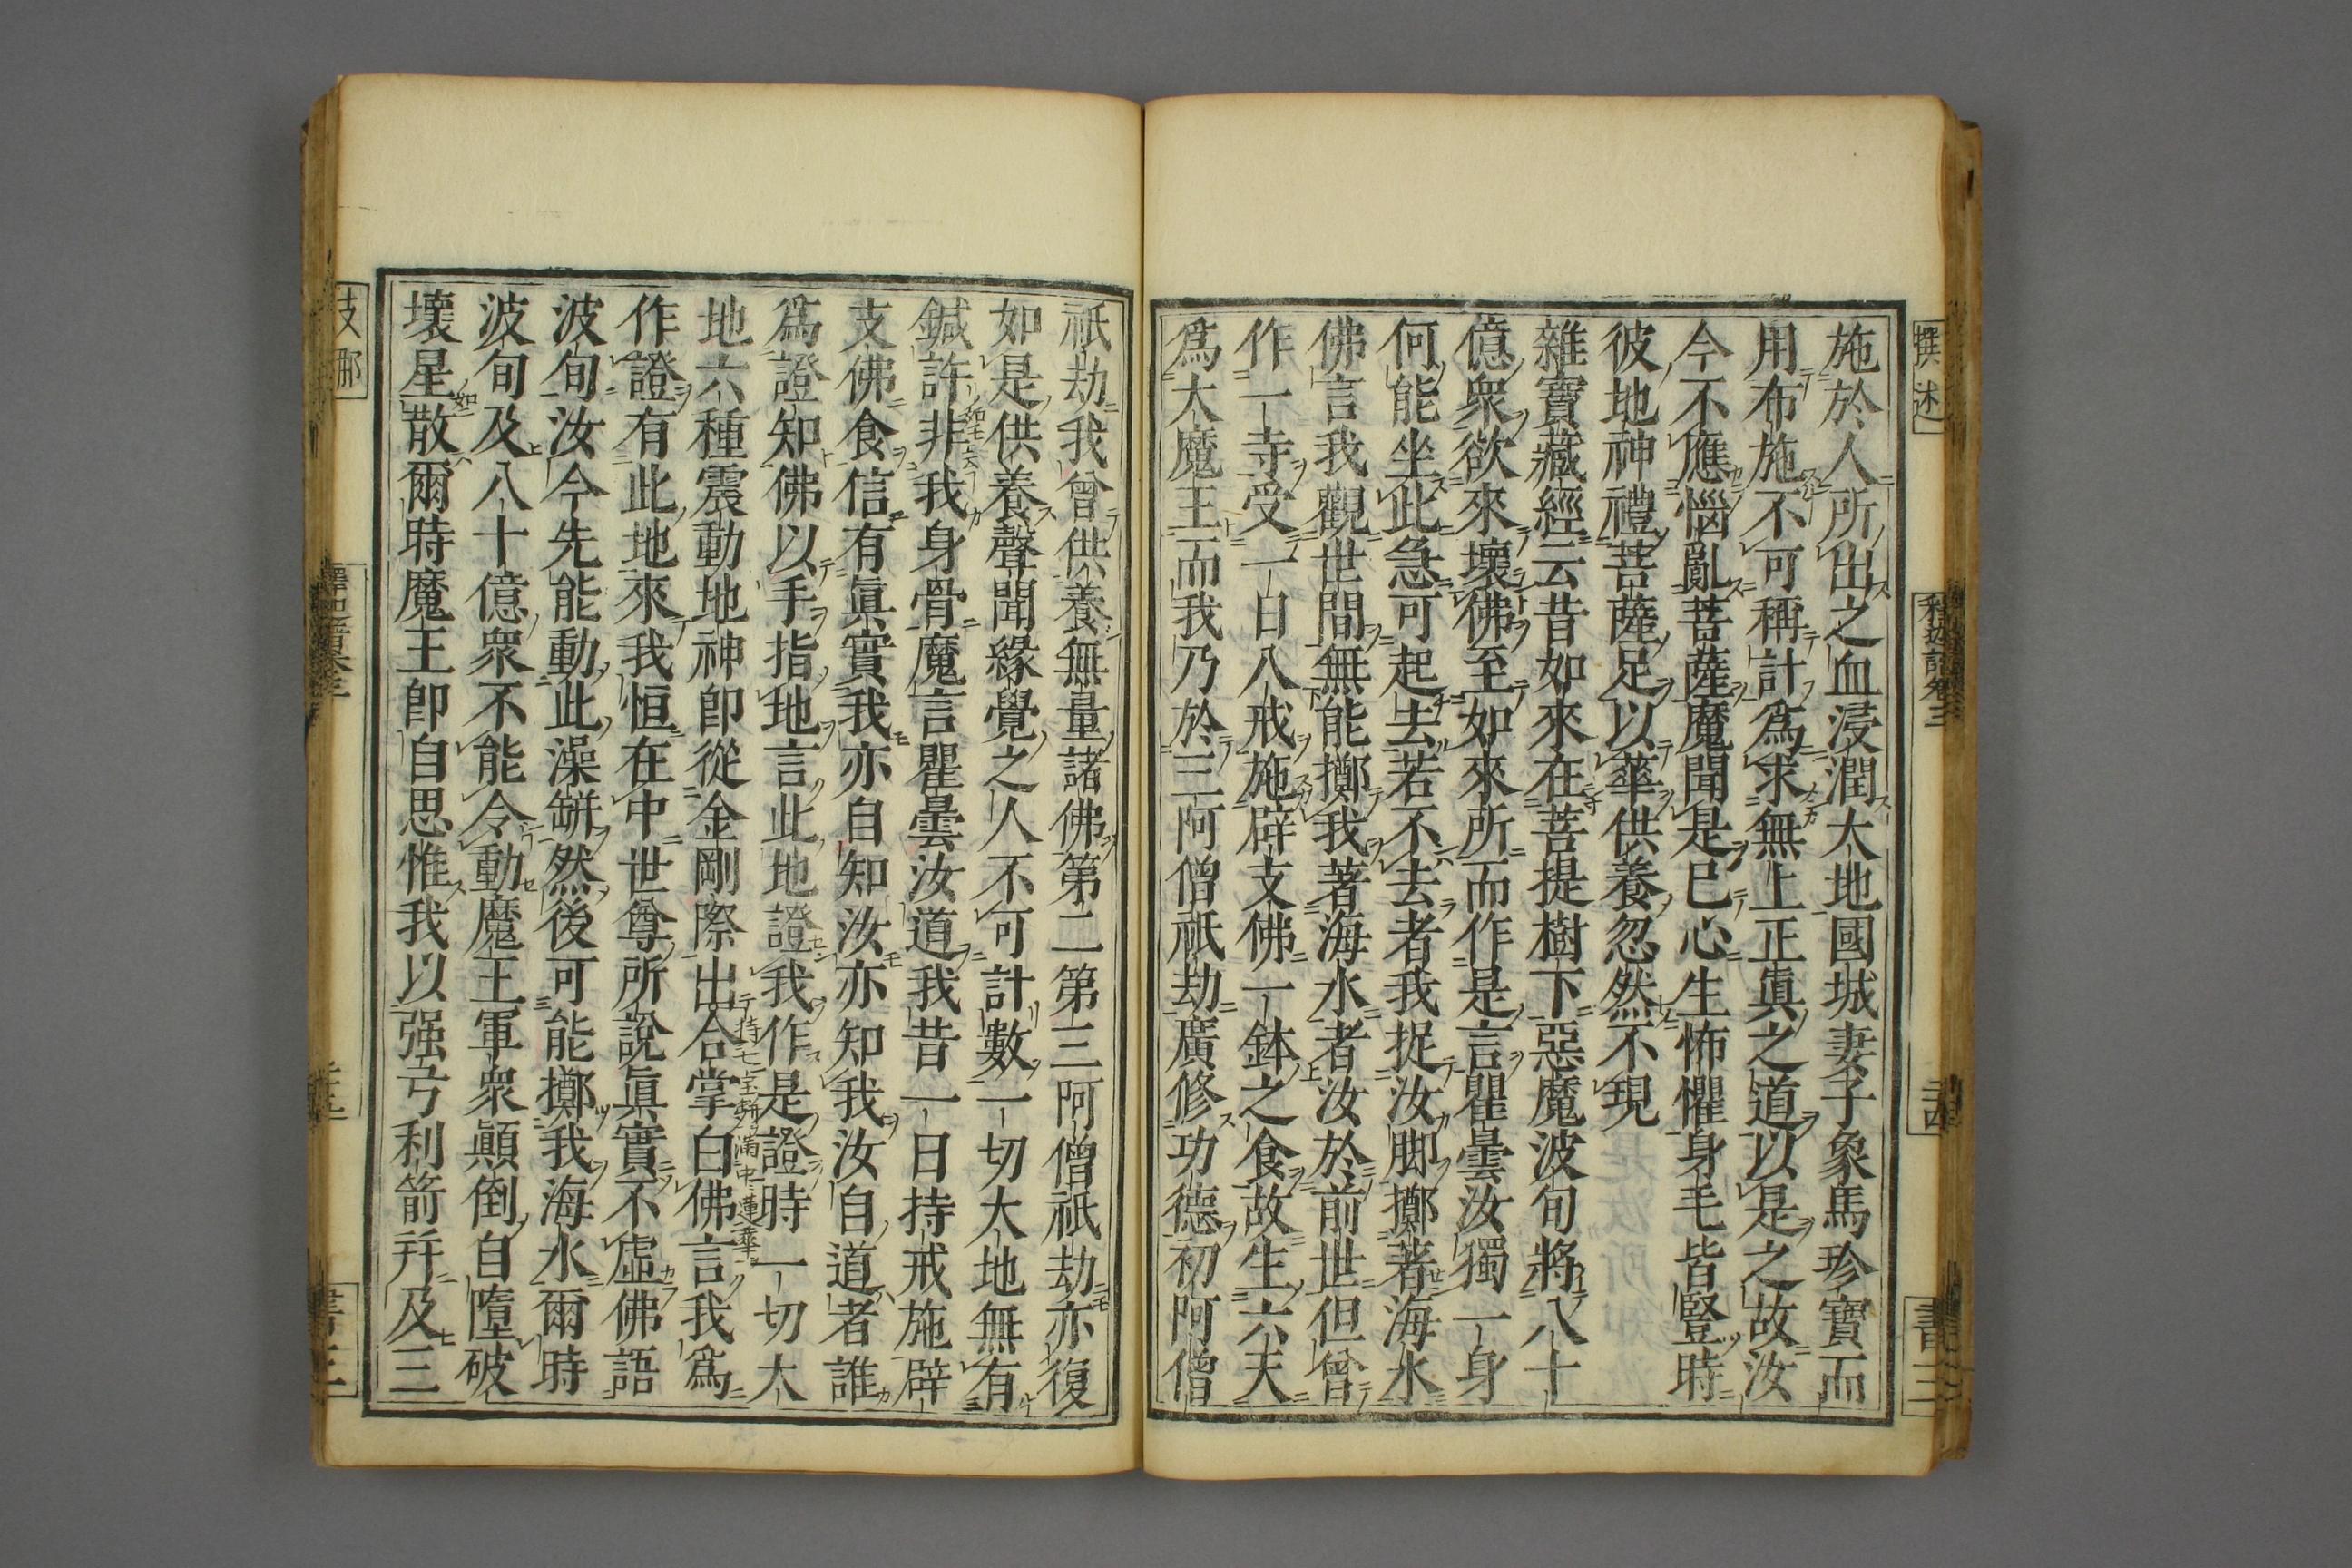 撰述
釋迦譜卷三
二十四
書三
施於人所出之血浸潤大地國城妻子象馬珍寶而
用布施不可稱計爲求無上正眞之道以是之故汝
今不應惱亂菩薩魔聞是已心生怖懼身毛皆豎時
彼地神禮菩薩足以華供養忽然不現
雜寶藏經云昔如來在菩提樹下惡魔波旬將八十
億衆欲來壞佛至如來所而作是言瞿曇汝獨一身
何能坐此急可起去若不去者我捉汝脚擲著海水
佛言我觀世間無能擲我著海水者汝於前世但曾
作一寺受一日八戒施辟支佛一鉢之食故生六天
爲大魔王而我乃於三阿僧祇劫廣修功德初阿僧
祇劫我曾供養無量諸佛第二第三阿僧祇劫亦復
如是供養聲聞緣覺之人不可計數一切大地無有
鍼許非我身骨魔言瞿曇汝道我昔一日持戒施辟
支佛食信有眞實我亦自知汝亦知我汝自道者誰
爲證知佛以手指地言此地證我作是證時一切大
地六種震動地神卽從金剛際出合掌白佛言我爲
作證有此地來我恒在中世尊所說眞實不虛佛語
波旬汝今先能動此澡缾然後可能擲我海水爾時
波旬及八十億衆不能令動魔王軍衆顚倒自墮破
壞星散爾時魔王卽自思惟我以强弓利箭幷及三
支那
書三